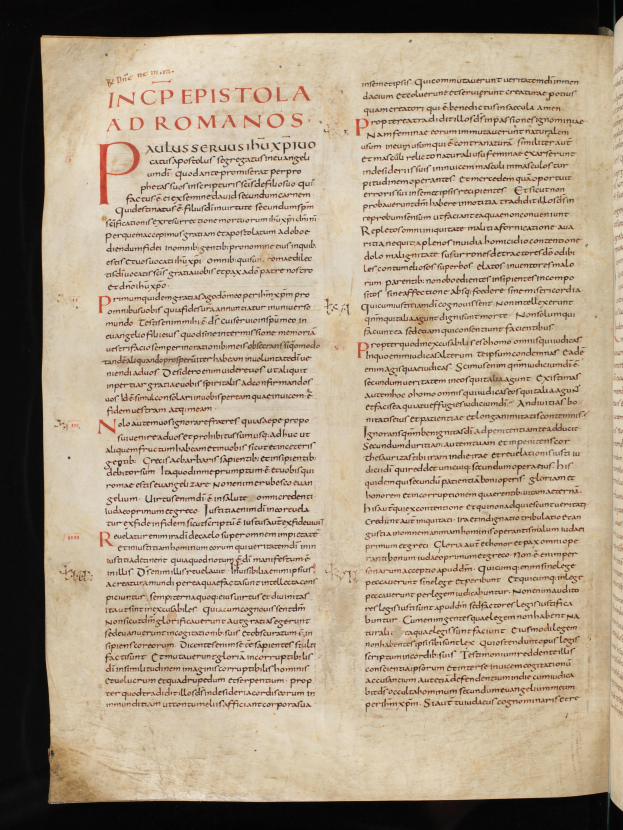 INCP EPISTOLA
AD ROMANOS
PAULUS SERUUS IHU XPI UO
catus apostolus segregatus in euangeli
um di quod ante promiserat per pro
phetas suos in scripturis scis de filio suo qui
factus e ei ex semine dauid secundum carnem
Qui destinatus e filius di in uirtute secundum spm
scificationis ex resurrectione mortuorum ihu xpi dni nri
Per quem accepimus gratiam et apostolatum ad oboe
diendum fidei in omnib; gentib; pro nomine eius in quib;
estis et uos uocati ihu xpi omnib; qui sunt romae dilec
tis di uocatis scis gratia uobis et pax a do patre nostro
et dno ihu xpo
Primum quidem gratias ago do meo per ihm xpm pro
omnibus uobis quia fides uestra annuntiatur in uniuerso
mundo Testis enim mihi e ds cui seruio in spu meo in
euangelio filii eius quod sine intermissione memoria
uestri facio semper in orationib; meis obsecrans si quo modo
tandem aliquando prosperum iter habeam in uoluntate di ue
niendi ad uos Desidero enim uidere uos ut aliquid
inpertiar gratiae uobis spiritalis ad confirmandos
uos Id e simul consolari in uobis per eam quae inuicem e
fidem uestram atq; meam
Nolo autem uos ignorare fratres quia saepe propo
sui uenire ad uos et prohibitus sum usq; adhuc ut
aliquem fructum habeam et in uobis sicut et in ceteris
gentib; Grecis ac barbaris sapientib; et insipientib;
debitor sum Ita quod in me promptum e et uobis qui
romae estis euangelizare Non enim erubesco euan
gelium Uirtus enim di e in salute omni credenti
iudaeo primum et greco Iustitia enim di in eo reuela
tur ex fide in fidem sicut scriptu e iustus aut ex fide uiuit
Reuelatur enim ira di de caelo super omnem impietate
et iniustitiam hominum eorum qui ueritatem di in in
iustitia detinent quia quod notum e di manifestum e
in illis Ds enim illis reuelauit Inuisibilia enim ipsius
a creatura mundi per ea quae facta sunt intellecta cons
piciuntur sempiterna quoq; eius uirtus et diuinitas
ita ut sint inexcusabiles Quia cum cognouissent dm
Non sicut dm glorificauerunt aut gratias egerunt
sed euanuerunt in cogitationib; suis et obscuratum e in
sipiens cor eorum Dicentes enim se e sapientes stulti
facti sunt Et mutauerunt gloriam incorruptibilis
di in similitudinem imaginis corruptibilis hominis
et uolucrum et quadrupedum et serpentium prop
ter quod tradidit illos ds in desideria cordis eorum in
inmunditiam ut contumeliis afficiant corpora sua
in semetipsis Qui commutauerunt ueritatem di in men
dacium et coluerunt et seruierunt creaturae potius
quam creatori qui e benedictus in saecula amen
Propterea tradidit illos ds in passiones ignominiae
Nam feminae eorum immutauerunt naturalem
usum in eum usum qui e contra naturam Similiter aut
et masculi relicto naturali usu feminae exarserunt
in desideriis suis in inuicem masculi in masculos tur
pitudinem operantes Et mercedem quam oportuit
erroris sui in semetipsis recipientes Et sicut non
probauerunt dm habere in notitia tradidit illos ds in
reprobum sensum ut faciant ea quae non conueniunt
Repletos omni iniquitate malitia fornicatione aua
ritia nequitia plenos inuidia homicidio contentione
dolo malignitate susurrones detractores do odibi
les contumeliosos superbos elatos inuentores malo
rum parentib; non oboedientes insipientes incompo
sitos sine affectione absq; foedere sine misericordia
Qui cum iustitiam di cognouissent Non intellexerunt
qnm qui talia agunt digni sunt morte Non solum qui
faciunt ea sed etiam qui consentiunt facientibus
Propter quod inexcusabilis es o homo omnis qui iudicas
In quo enim iudicas alterum teipsum condemnas Eade
enim agis quae iudicas Scimus enim qnm iudicium di e
secundum ueritatem in eos qui talia agunt Existimas
autem hoc o homo omnis qui iudicas eos qui talia agunt
et facis ea quia tu effugies iudicium di An diuitias bo
nitatis eius et patientiae et longanimitatis contemnis
Ignorans qnm benignitas di ad penitentiam te adducit
Secundum duritiam autem tuam et inpenitens cor
thesaurizas tibi iram in die irae et reuelationis iusti iu
dicii di qui reddet unicuiq; secundum opera eius his
quidem qui secundum patientia boni operis gloriam et
honorem et incorruptionem quaerentib; uitam aeterna
his aut qui ex contentione et qui non adquiescunt ueritati
Credunt aut iniquitati Ira et indignatio tribulatio et an
gustia in omnem animam hominis operantis malum iudaei
primum et greci Gloria aut et honor et pax omni ope
ranti bonum iudaeo primum et greco Non e enim per
sonarum acceptio apud dm Quicumq; enim sine lege
peccauerunt sine lege et peribunt Et quicumq; in lege
peccauerunt per legem iudicabuntur Non enim audito
res legis iusti sunt apud dm sed factores legis iustifica
buntur Cum enim gentes quae legem non habent Na
turaliter ea quae legis sunt faciunt Eiusmodi legem
non habentes ipsi sibi sunt lex Qui ostendunt opus legis
scriptum in cordib; suis Testimonium reddente illis
conscientia ipsorum et inter se inuicem cogitationu
accusantium aut etia defendentium in die cum iudica
bit ds occulta hominum secundum euangelium meum
per ihm xpm Si aut tu iudaeus cognominaris et re